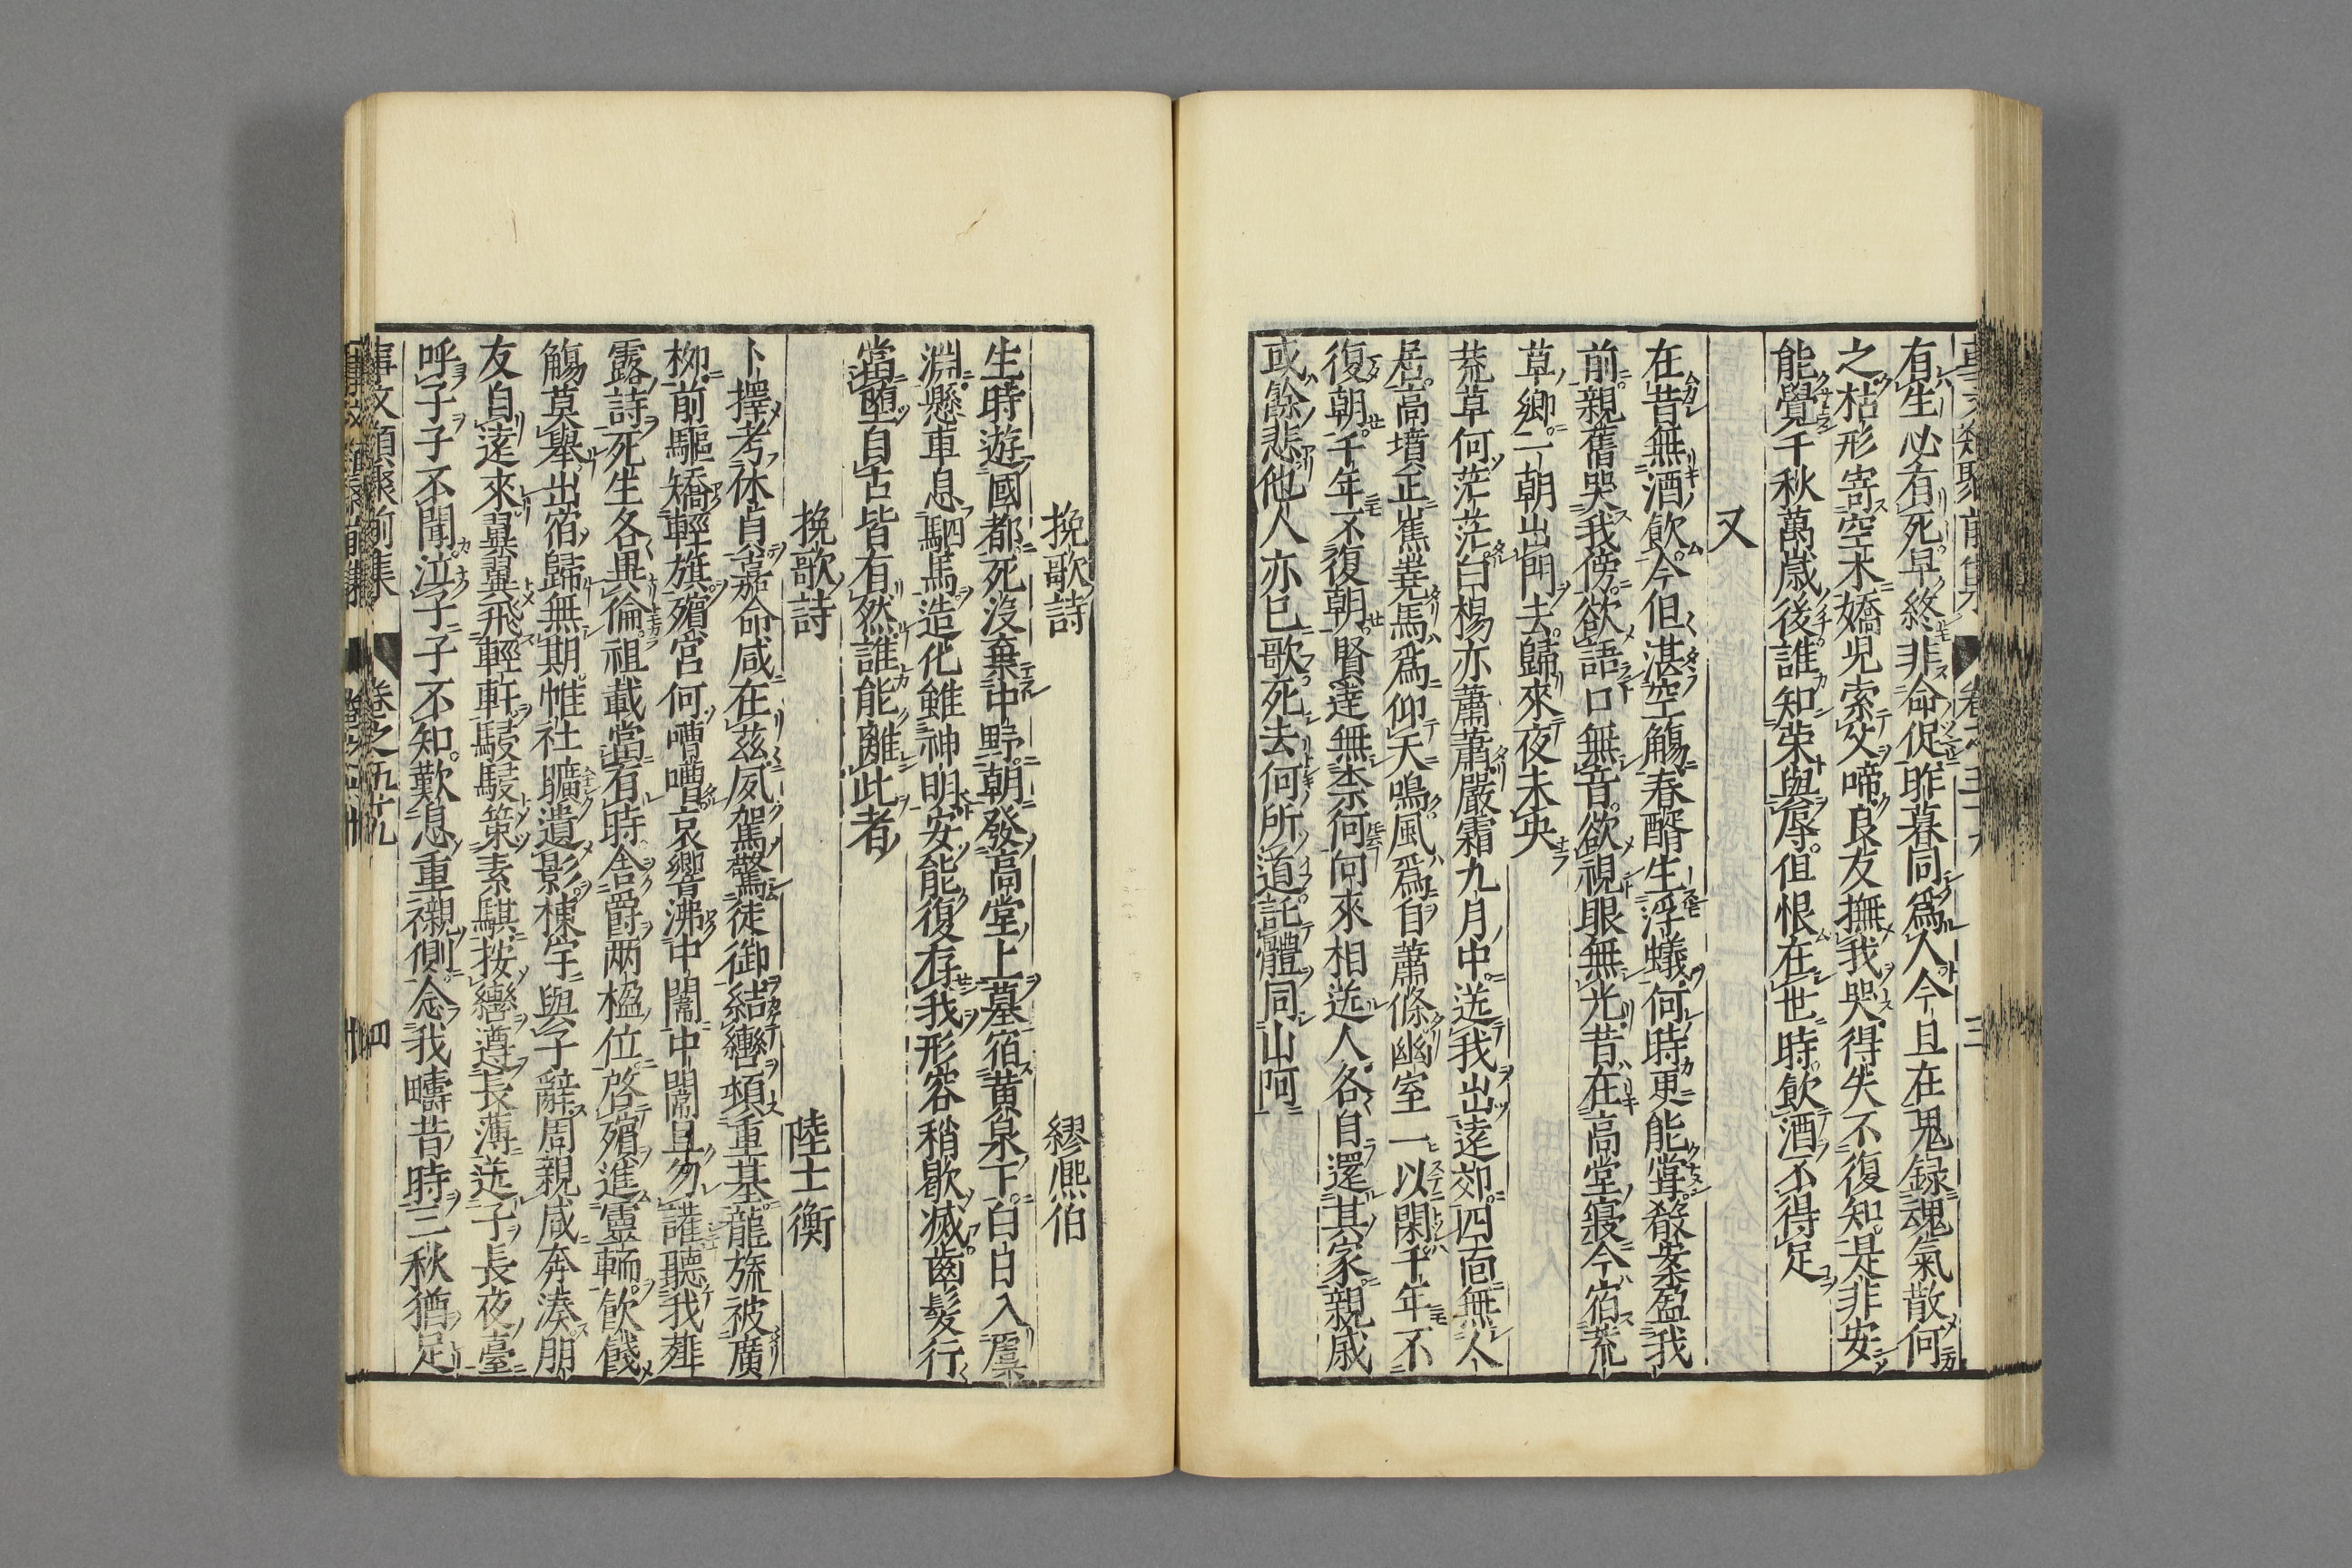 有生必有死早終非命促昨暮同爲人今且在鬼録魂氣散何
之枯形寄空木嬌児索父啼良友撫我哭得失不復知是非安
能覺千秋萬歳後誰知荣與辱但恨在世時飲酒不得足
又
在昔無酒飲今但湛空觴春醪生浮蟻何時更能甞殽案盈我
前親舊哭我傍欲語口無音欲視眼無光昔在高堂寢今宿荒
草鄉一朝出門去歸來夜未央
荒草何茫茫白楊亦蕭蕭嚴霜九月中送我出遠郊四面無人
居高墳正嶣嶤馬爲仰天鳴風爲自蕭條幽室一以閑千年不
復朝千年不復朝賢達無柰何向來相送人各自還其家親戚
或餘悲他人亦已歌死去何所道託體同山阿
挽歌詩 繆熈伯
生時遊國都死沒棄中野朝發高堂上墓宿黄泉下白日入虞
淵懸車息駟馬造化雖神明安能復存我形容稍歇滅齒髮行
當堕自古皆有然誰能離此者
挽歌詩 陸士衡
卜擇考休貞嘉命咸在茲夙駕驚徒御結轡頓重基龍旒被廣
栁前驅矯輕旗殯宮何嘈嘈哀響沸中闈中闈且勿讙聽我薤
露詩死生各異倫祖載當有時舎爵兩楹位啓殯進靈輀飲餞
觴莫舉出宿歸無期帷衽曠遺影棟宇與子辭周親咸奔湊朋
友自遠來翼翼飛輕軒駸駸策素騏按轡遵長薄送子長夜臺
呼子子不聞泣子子不知歎息重櫬側念我疇昔時三秋猶足
事文類聚前集 卷之五十九 四